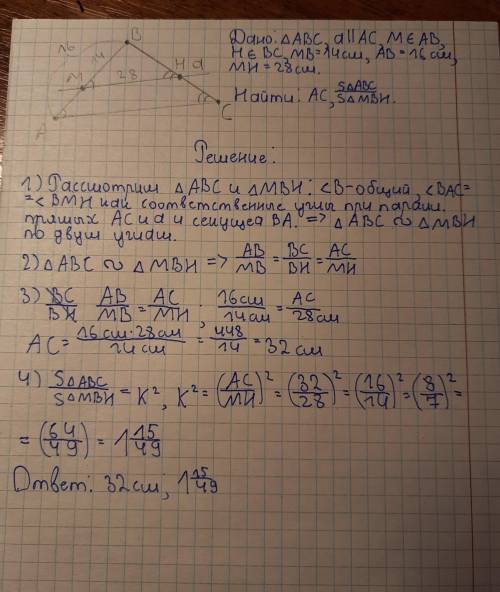 B
16
14
H a
M
28
A
C
Дано: △ABC, a||AC, M∈AB,
H∈BC, MB=14см, AB=16см,
MH=28см.
Найти: AC, S△ABC/S△MBH.
Решение:
1) Рассмотрим △ABC и △MBH: <B-общий, <BAC=
=<BMH как соответственные углы при парал.
прямых AC и a и секущей BA. => △ABC ∾ △MBH
по двум углам.
2) △ABC ∾ △MBH => AB/MB = BC/BH = AC/MH
3) BC/BH AB/MB = AC/MH ; 16см/14см = AC/28см
AC = 16см·28см/14см = 448/14 = 32 см
4) S△ABC/S△MBH = K², K² = (AC/MH)² = (32/28)² = (16/14)² = (8/7)² =
= (64/49) = 1 15/49
Ответ: 32см; 1 15/49